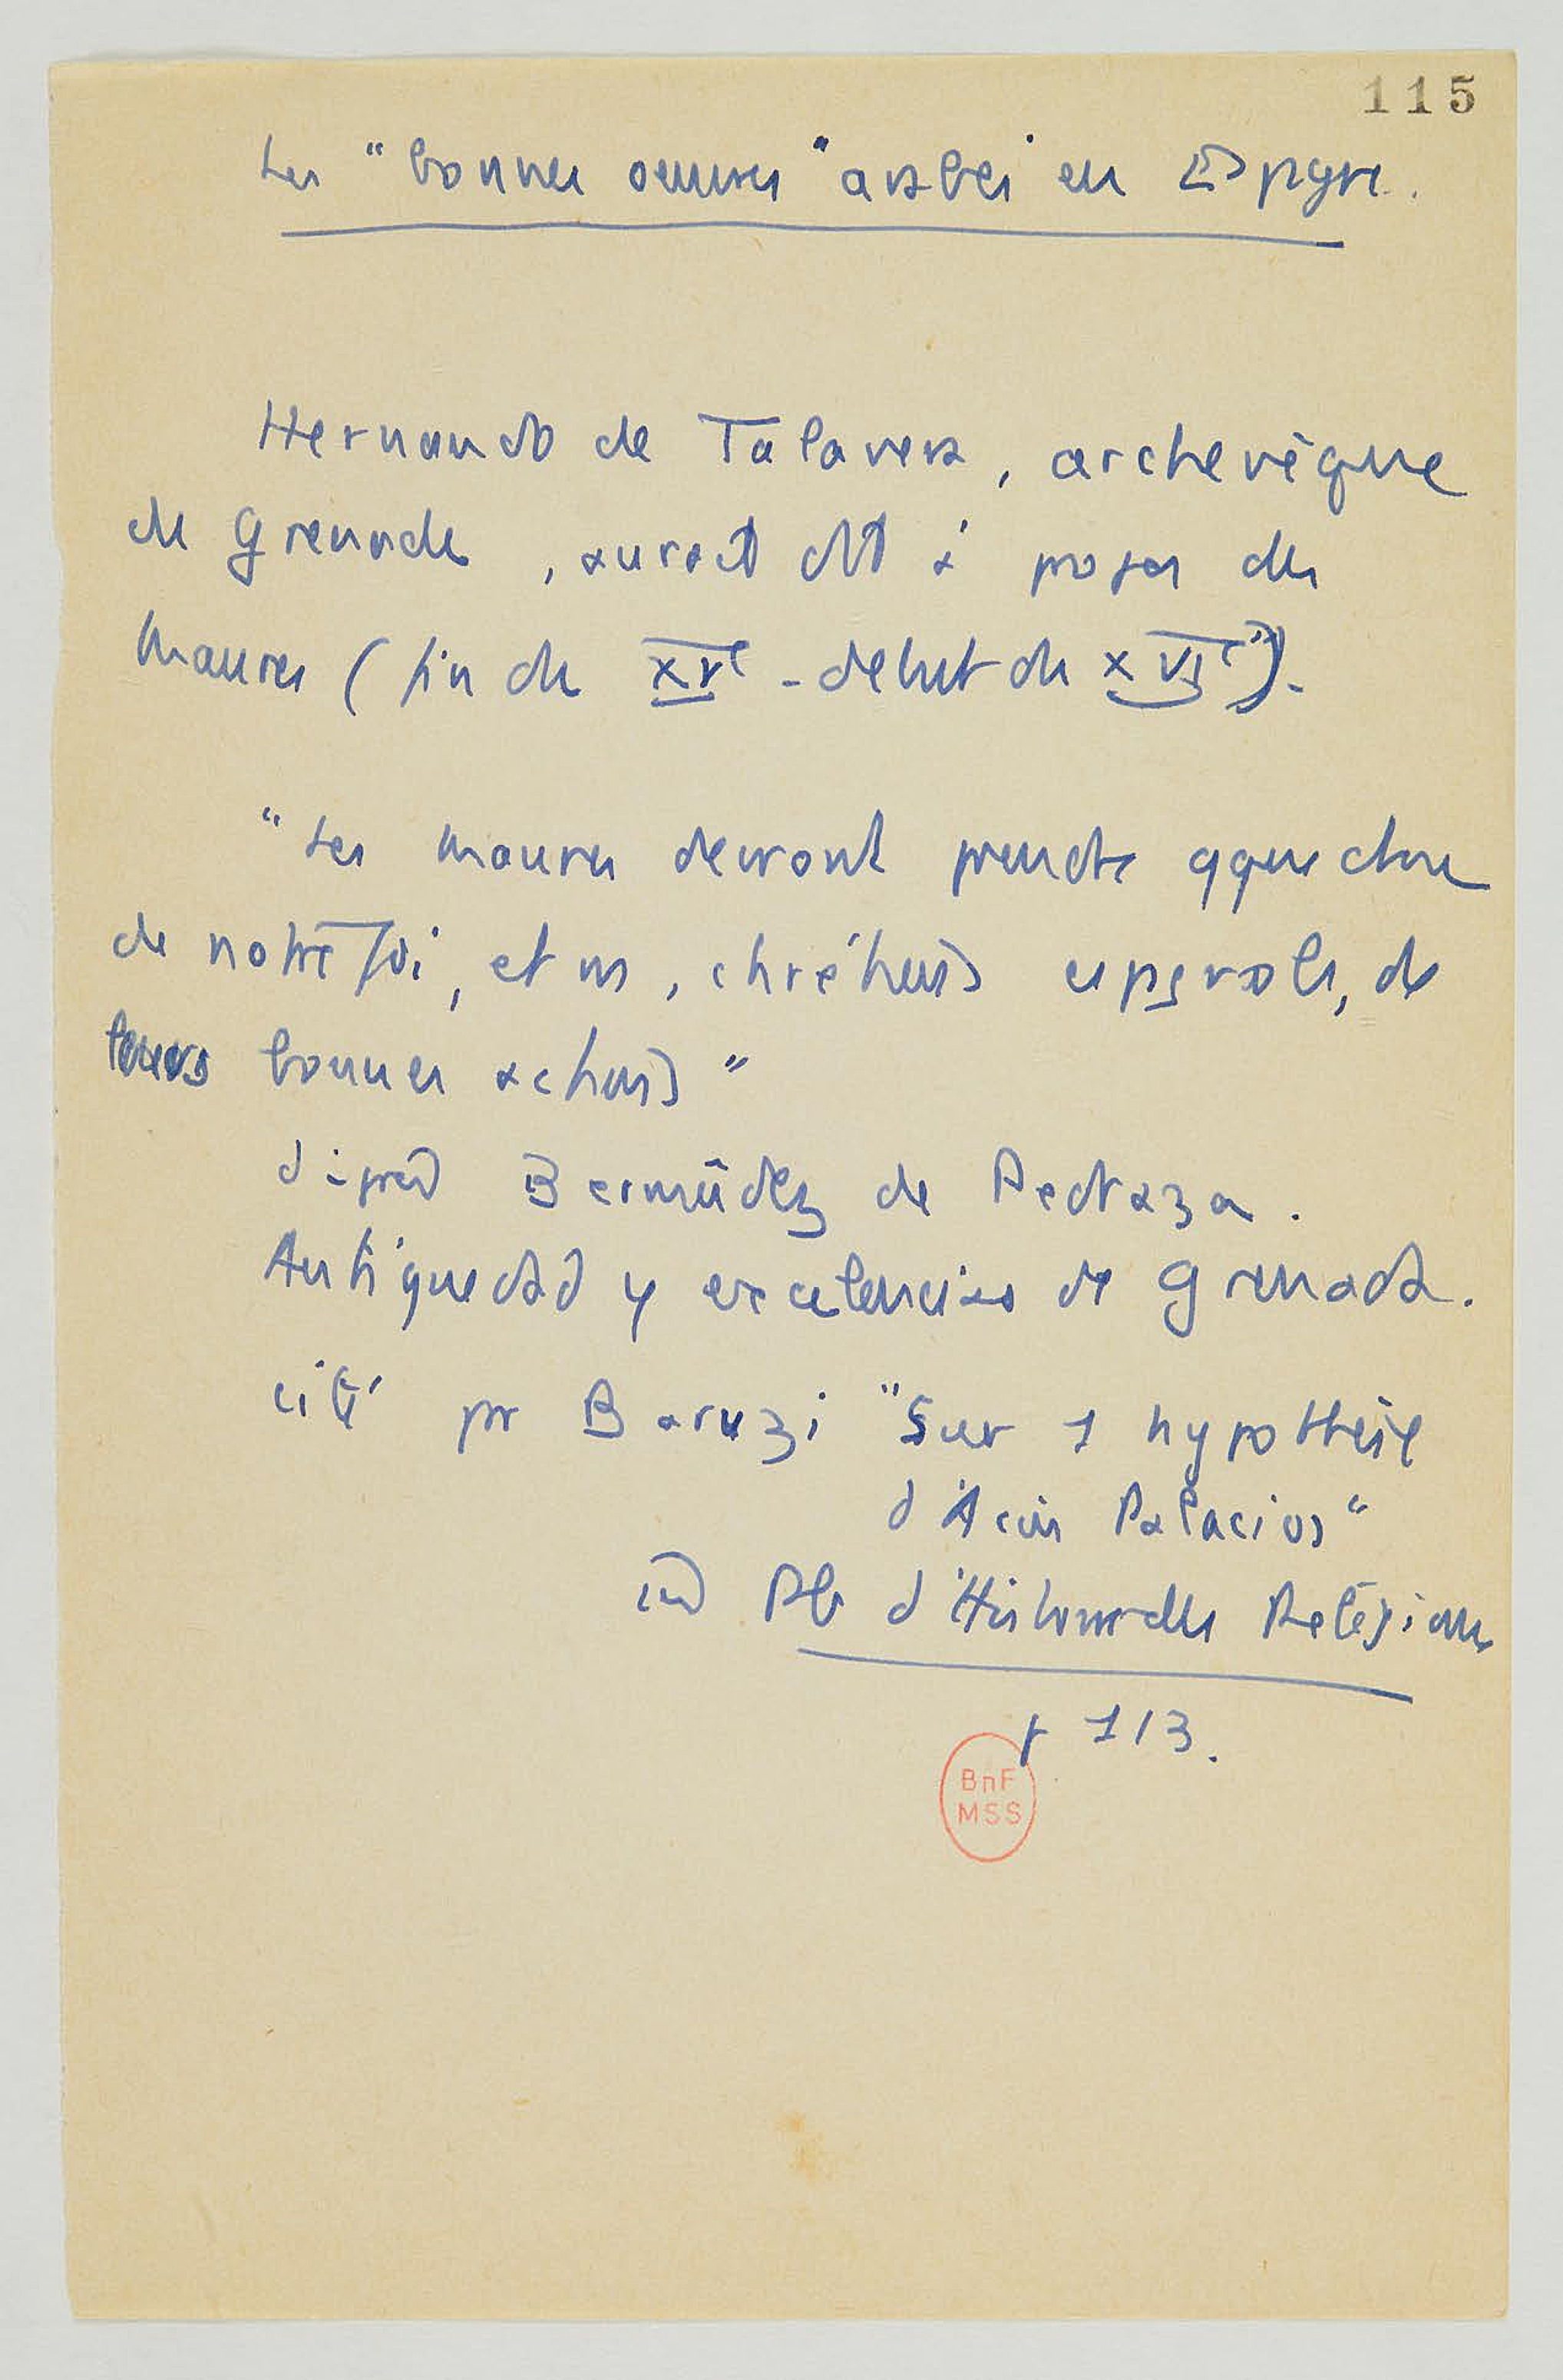 115
Les "bonnes oeuvres" arabes en Espgne.
Hernando de Talavera, archevêque
de Grenade, aurait dit à propos des
Maures (fin du XVe - début du XVIe).
"Les Maures devront prendre qque chose
de notre foi, et ns, chrétiens espgnols, de
leurs bonnes actions"
d'après Bermúdez de Pedraza.
Antiquedad y excelencias de Grenada.
cité pr Baruzi "Sur 1 hypothèse
d'Asin Palacios"
in Pb d'Histoire des Religions
p 113.
BnF
MSS